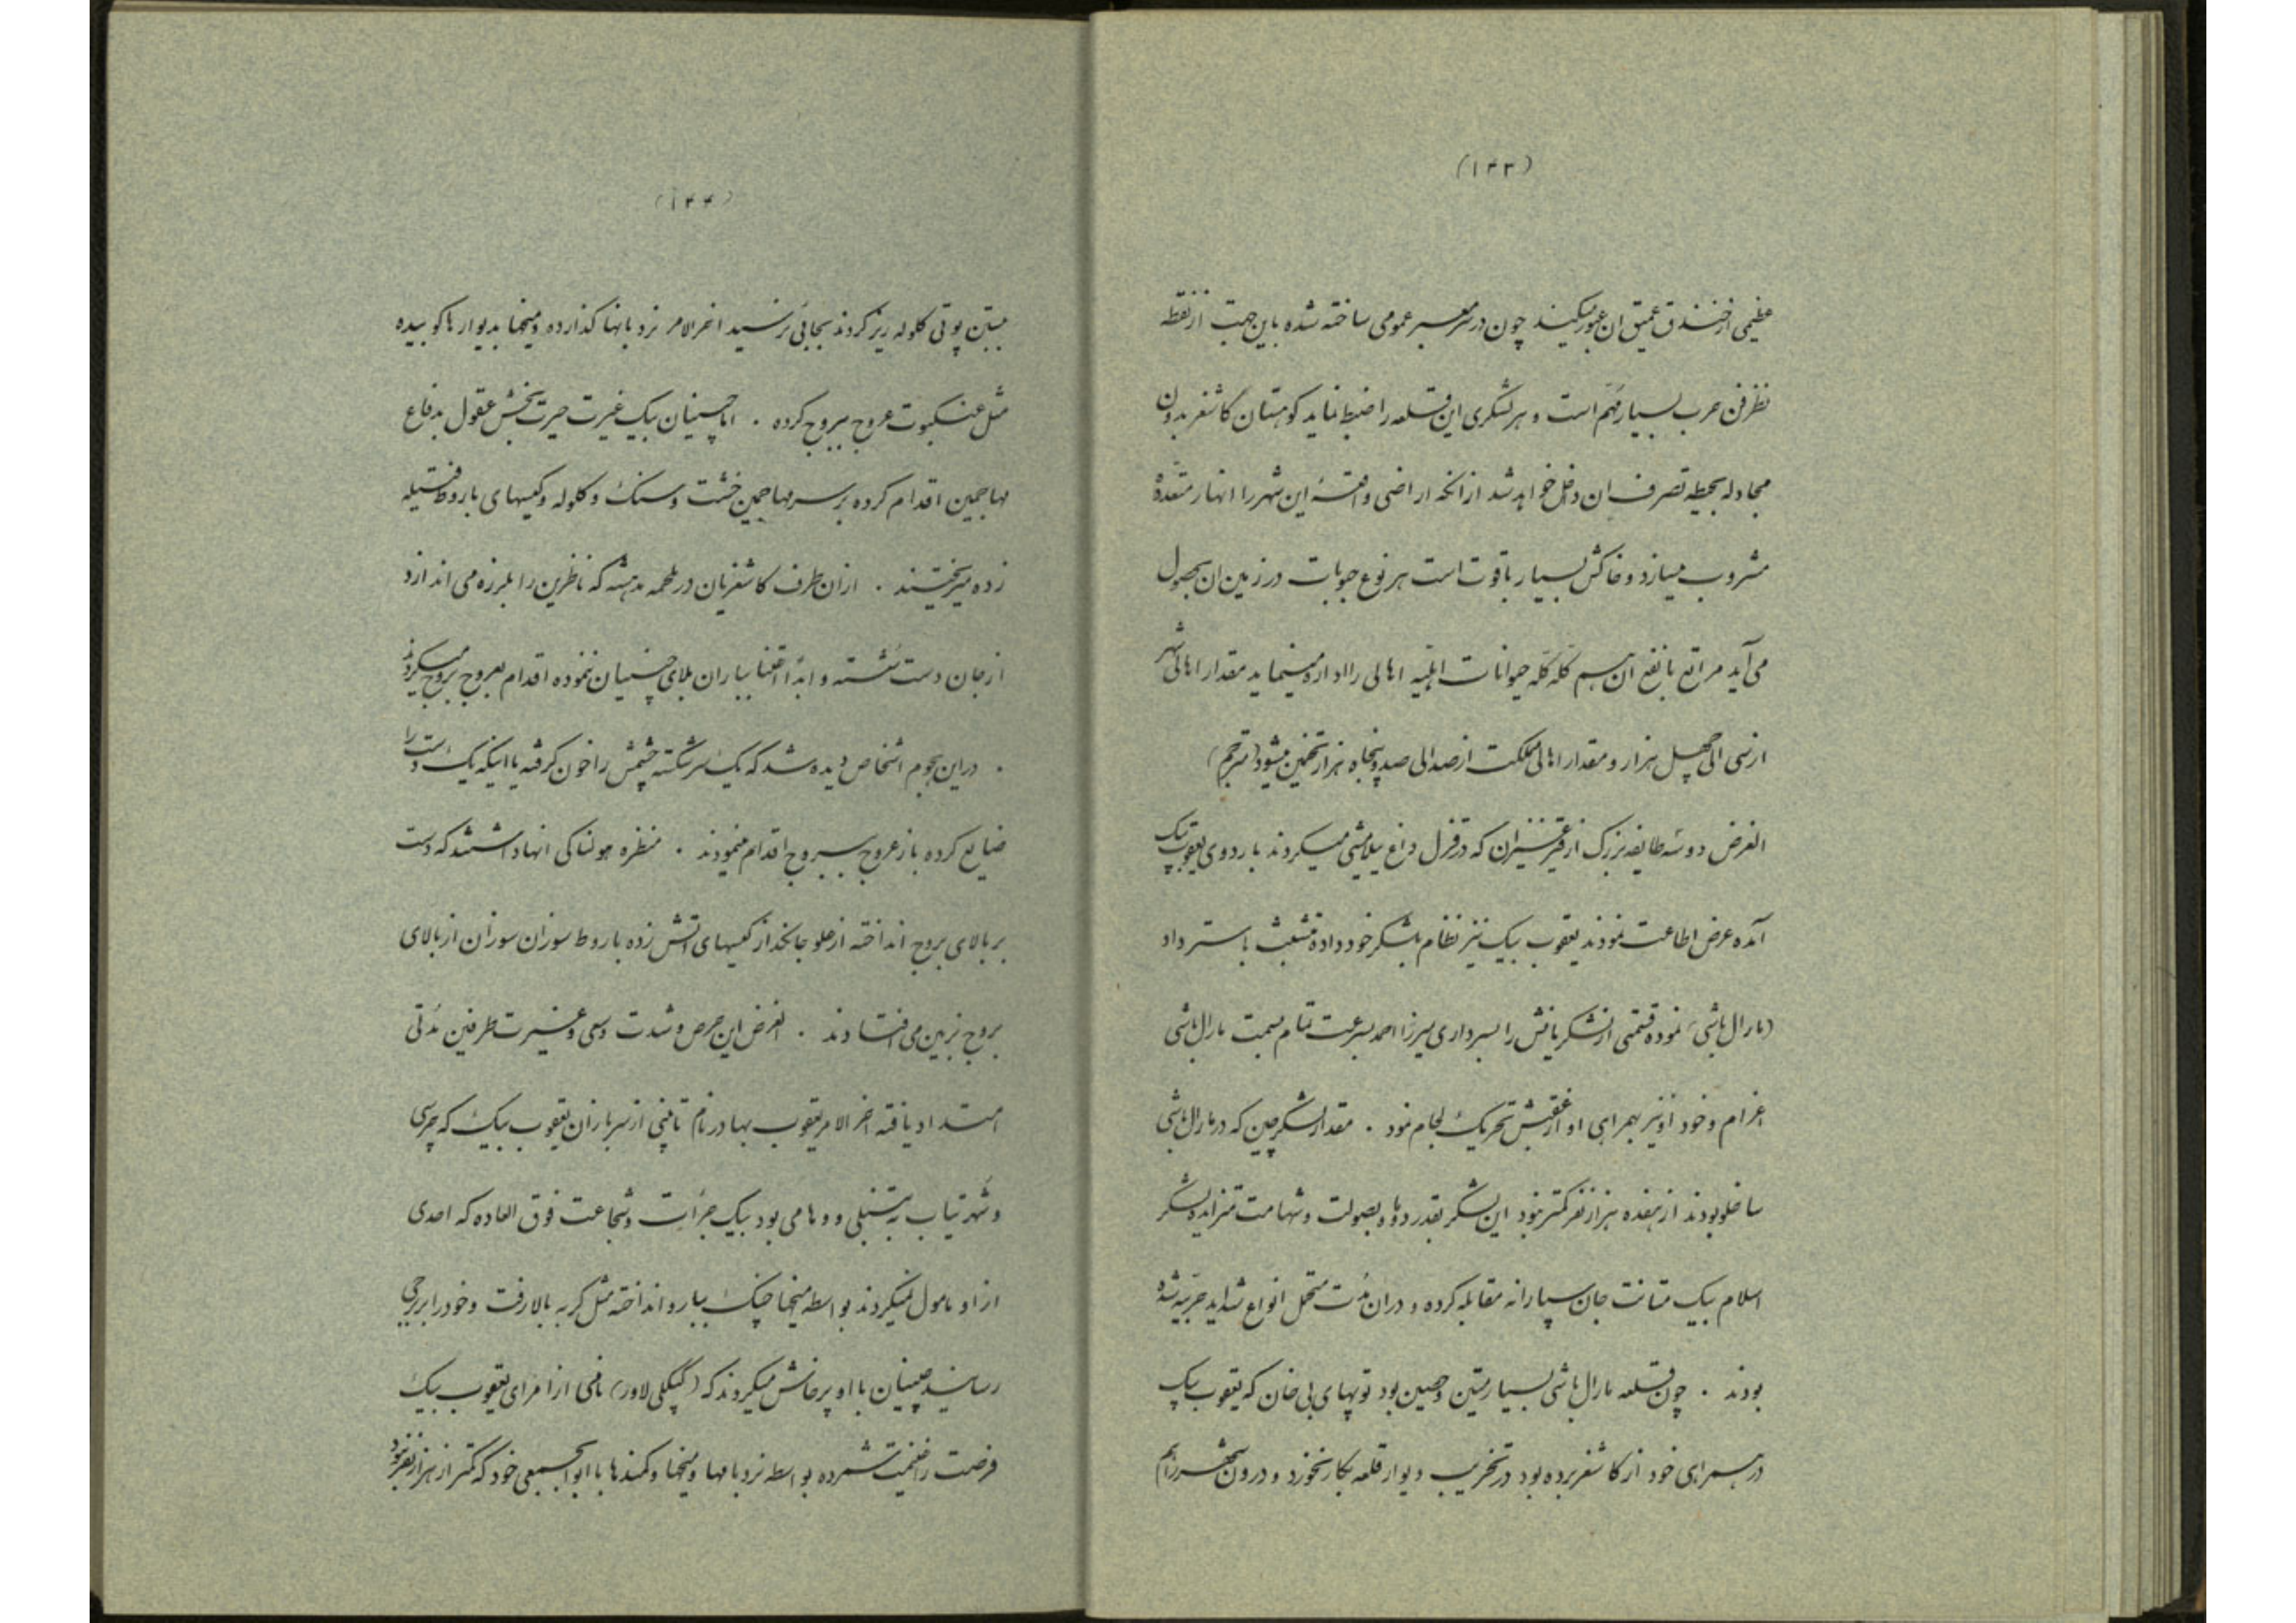 (۱۴۳)
عظیمی از خندق عمیق ان عبور میکنید چون در سر معبر عمومی ساخته شده باین جهت از نقطه
نظر فن حرب بسیار مهم است و هر لشگری این قلعه را ضبط نماید کوهستان کاشغر بدون
مجادله بحیطه تصرف ان داخل خواهد شد از انکه اراضی واقعهٔ این شهر را انهار متعدّده
مشروب میسازد و خاکش بسیار باقوت است هر نوع حبوبات در زمین ان بحصول
می آید مراتع بانفع ان هم گله گله حیوانات اهلیه اهالی را اداره مینماید مقدار اهالی شهر
از سی الی چهل هزار و مقدار اهالی مملکت از صد الی صد و پنجاه هزار تخمین میشود (مترجم)
الغرض دو سه طایفه بزرک از قرقیزان که در قزل داغ ییلامیشی میکردند باردوی یعقوب بیک
آمده عرض اطاعت نمودند یعقوب بیک نیز نظام بلشکر خود داده تشبث باسترداد
(مارال باشی) نموده قسمتی از لشکریانش را بسرداری میرزا احمد بسرعت تمام بسمت مارال باشی
اعزام و خود او نیز بهمراهی او از عقبش تحریک لجام نمود . مقدار لشکر چین که در مارال باشی
ساخلو بودند از هفده هزار نفر کمتر نبود این لشکر بقدر دو ماه بصولت و شهامت لشکر
اسلام بیک متانت جان سپارانه مقابله کرده و در ان مدت متحمل انواع شداید حربیه شده
بودند . چون قلعه مارال باشی بسیار متین و حصین بود توپهای بی خان که یعقوب بیک
در همراهی خود از کاشغر برده بود در تخریب دیوار قلعه بکار نخورد و درون شهر را هم
(۱۴۴)
کلوله ریز کردند بجائی نرسید اخر الامر نردبانها کذارده و میخها بدیوارها کوبیده
مثل عنکبوت عروج ببروج کرده . اما چینیان بیک غیرت حیرت بخش عقول بدفاع
مهاجمین اقدام کرده بر سر مهاجمین خشت و سنک و کلوله و کیسهای باروط فتیله
زده میریختند . از ان طرف کاشغریان در ملحمه مدهشه که ناظرین را بلرزه می اندازد
از جان دست شسته و ابدا اعتنا بباران بلای چینیان ننموده اقدام بعروج بروج میکردند
. در این هجوم اشخاص دیده شد که یک سر شکسته چشمش را خون کرفته یا اینکه یک دست را
ضایع کرده باز عروج ببروج اقدام مینمودند . منظره هولناکی انها داشتند که دست
بر بالای بروج انداخته از علو جانکداز کیسهای اتش زده باروط سوزان سوزان از بالای
بروج بزمین می افتادند . الغرض این حرص و شدت و سعی و غیرت طرفین مدتی
امتداد یافته اخر الامر یعقوب بهادر نام از سربازان یعقوب بیک که چرسی
و شهرتیاب به تنبلی و بود بیک جرأت و شجاعت فوق العاده که احدی
از او مامول نمیکردند بواسطه میخها چنک ببارو انداخته مثل کربه بالا رفت و خود را ببرجی
رسانید چینیان با او پرخاش میکردند که (لاور) نامی از امرای یعقوب بیک
فرصت را غنیمت شمرده بواسطه نردبامها و میخها و کمندها با ابوابجمعی خود که کمتر از هزار نفر نبود